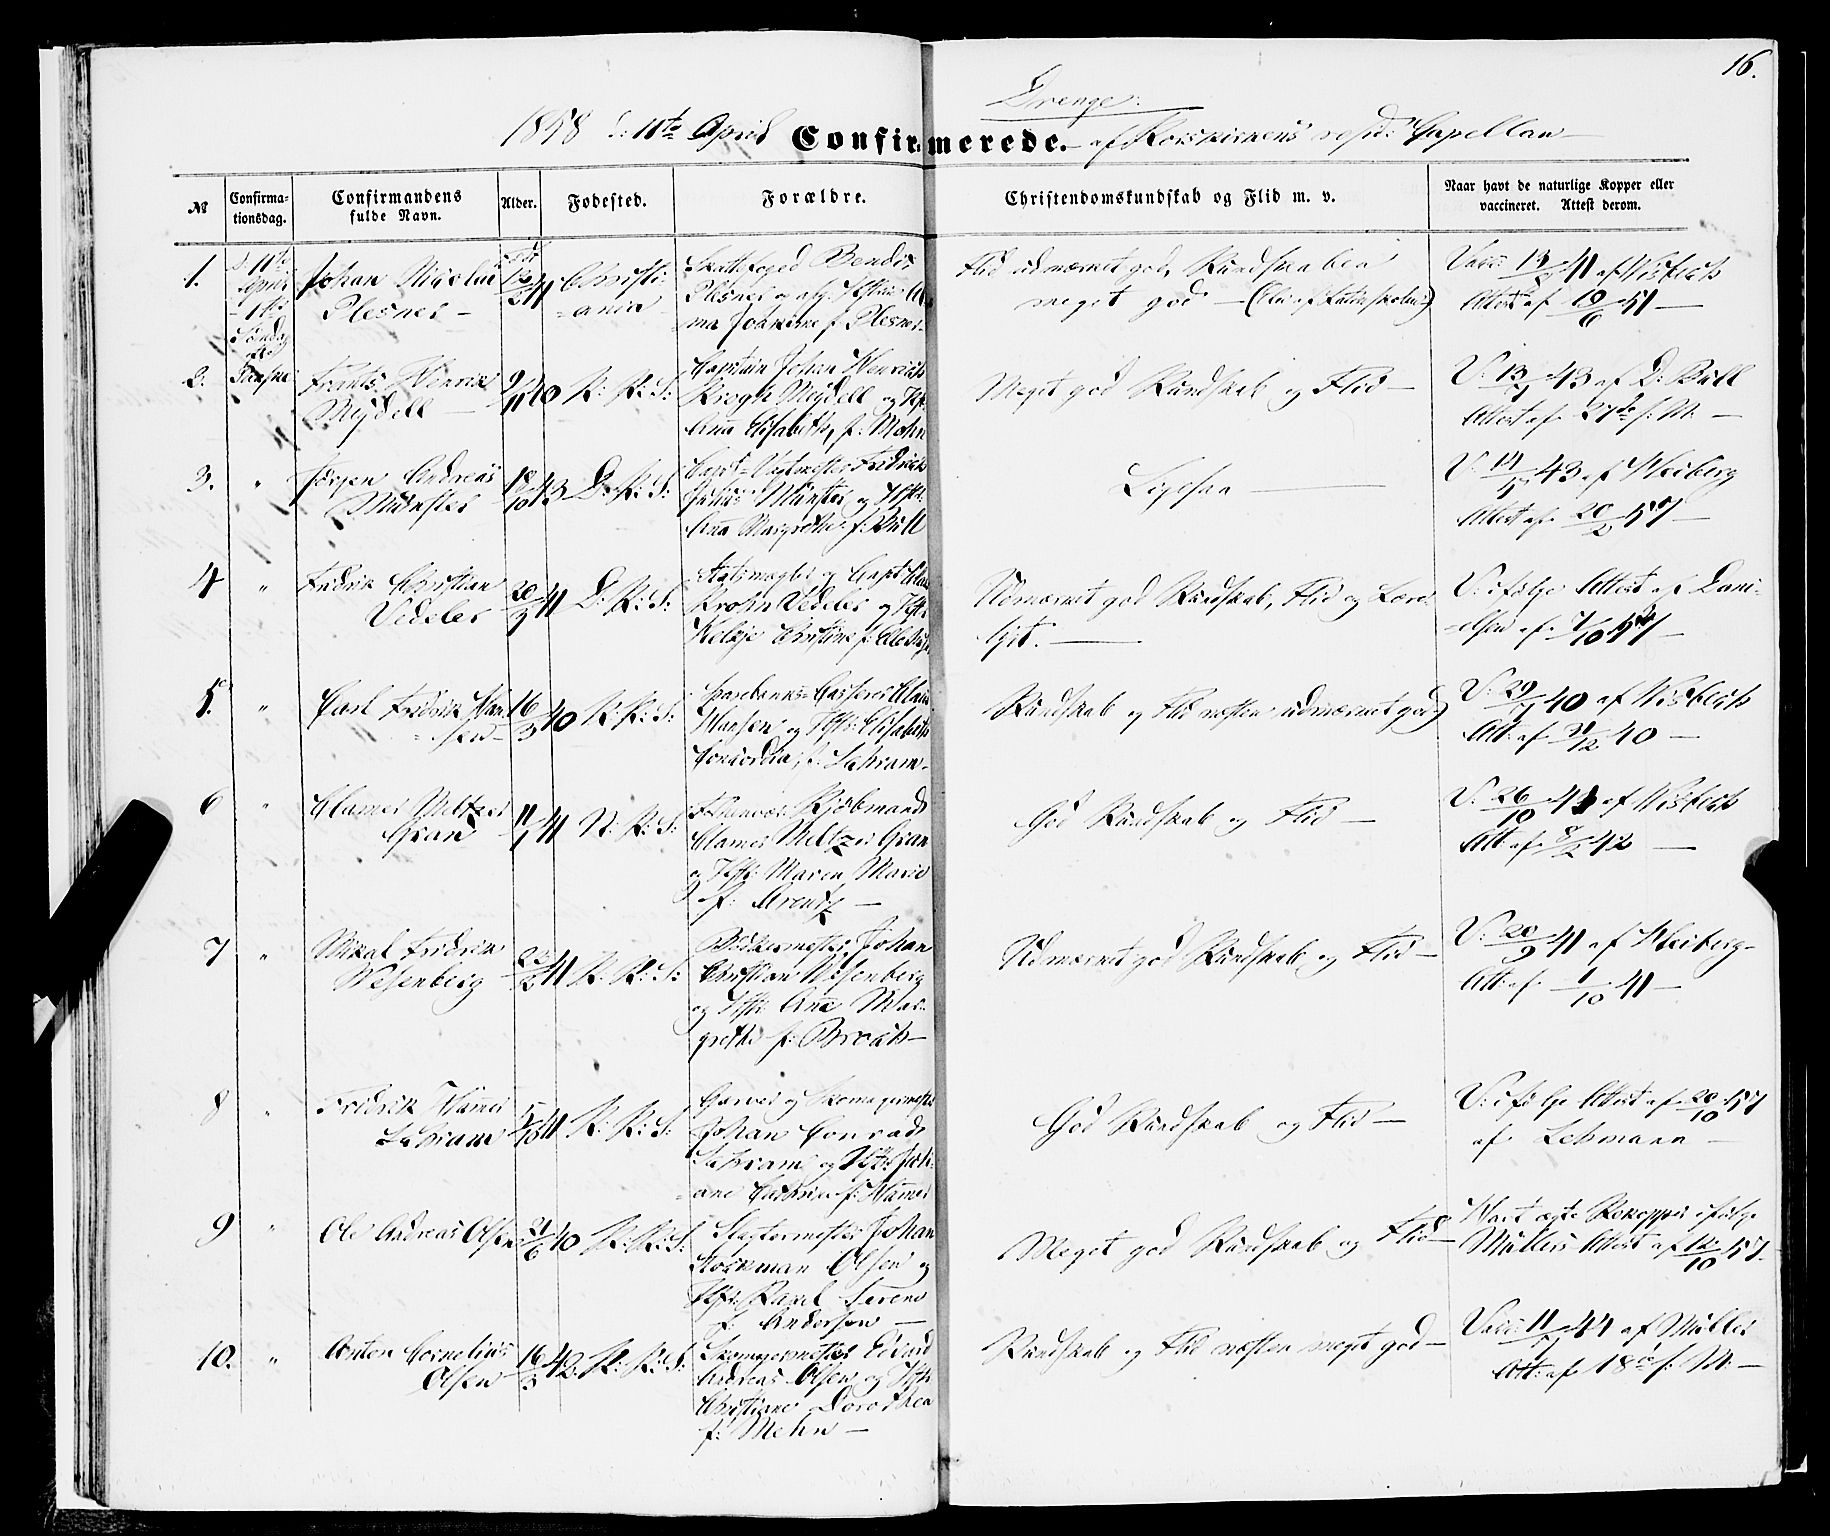 16.
Drenge.
1858 d: 11te April Confirmerede. af Korskirkens resid: Capellan
№
Confirma-
tionsdag.
Confirmandens
fulde Navn.
Alder.
Fødested.
Forældre.
Christendomskundskab og Flid m. v.
Naar havt de naturlige Kopper eller
vaccineret. Attest derom.
1.
d 11te
April
1ste
Søndag
efter
Paaske
Johan
Plesner
41
Christi-
ania
Bendix
Plesner og
Johanne f. Plesner
Flid udmærket god, Kundskaben
meget god (Elev af Latinskolen)
Vacc: 13 41 af Wisbech
Attest af 19/6 51
2.
Frants Henrik
Meydell
9/11 40
K: K: S:
Capitain Johan Henrich
Krogh Meydell og Hst:
Ana Elisabeth, f: Mohn
Meget god Kundskab og Flid
V: 13 43 af D: Bull
Attest af 27de s: M:
3.
"
Jørgen Andreas
Münster
18/10 43
D: K: S:
Fredrich
Münster og Hst:
Ana Margrethe f: Bull
Ligesaa
V: 14 43 af Heiberg
Attest af 20/2 57
4
"
Fredrik Christian
Vedeler
20/9 41
D: K: S:
og Capt:
Krohn Vedeler og Hst:
Christine f:
Udmærket god Kundskab, Flid og Lære-
lyst.
V: ifølge Attest af Dani-
elsen af 7/10 57
5.
"
Carl Fredrik Han-
sen
16/3 40
K: K: S:
Sparebanks-Casserer Claus
Hansen og Hst: Elisabeth
Concordia, f: Schram
Kundskab og Flid næsten udmærket god
V: 29 40 af Wisbech
Att: af 31/12 40
6
"
Clamer Meltzer
Gran
11/1 41
N: K: S:
Kjøbmand
Clamer Meltzer Gran
og Hst: Maren Marie
f: Arentz
God Kundskab og Flid
V: 26/10 41 af Wisbech
Att: af 8/2 42
7
"
Mikal Fredrik
Wesenberg
22/2 41
K: K: S:
Bødkermester Johan
Christian Wesenberg
og Hst: Ana Mar-
grethe f: Broch
Udmærket god Kundskab og Flid
V: 20/9 41 af Heiberg
Att: af 1/10 41
8
"
Fredrik Hamer
Schram
5/10 41
K: K: S:
Garver og Skomagermester
Johan Conrad
Schram og Hst: Joh-
ane Cathrine f: Hamer
God Kundskab og Flid
V: ifølge Attest af 20/10 57
af Lehmann
9
"
Ole Andreas Olsen
21/6 40
K: K: S:
Slagtermester Johan
Olsen og
Hst: Rakel Serene
f: Andersen
Meget god Kundskab og Flid
Havt ægte Kokopper ifølge
Müllers Attest af 12/10 57
10.
"
Anton Cornelius
Olsen
16/3 42
N: K: S:
Skomagermester Edvard
Andreas Olsen og Hst:
Christiane Dorothea
f: Mehn
Kundskab og Flid næsten meget god
Vacc: 11 44 af Müller
Att: af 18de s: M: